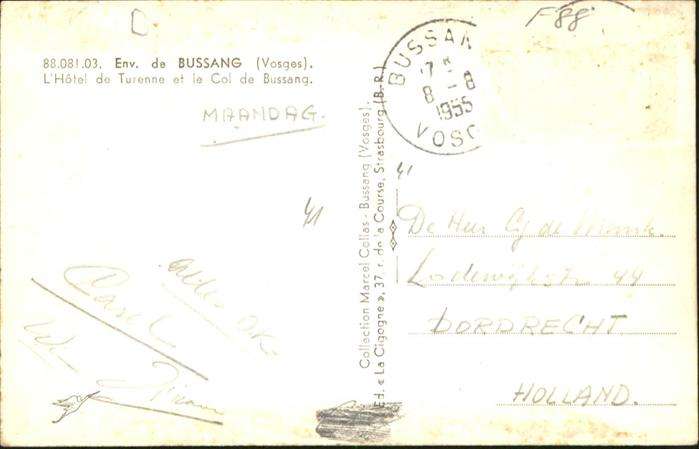 F88
88.081.03. Env. de BUSSANG (Vosges).
L'Hôtel de Turenne et le Col de Bussang.
MAANDAG.
BUSSAN
8 - 8
1955
VOSG
Collection Marcel Collas - Bussang (Vosges).
Ed. « La Cigogne », 37, r. de la Course, Strasbourg (B.-R.)
41
41
De Heer
44
DORDRECHT
HOLLAND.
Alles OK.